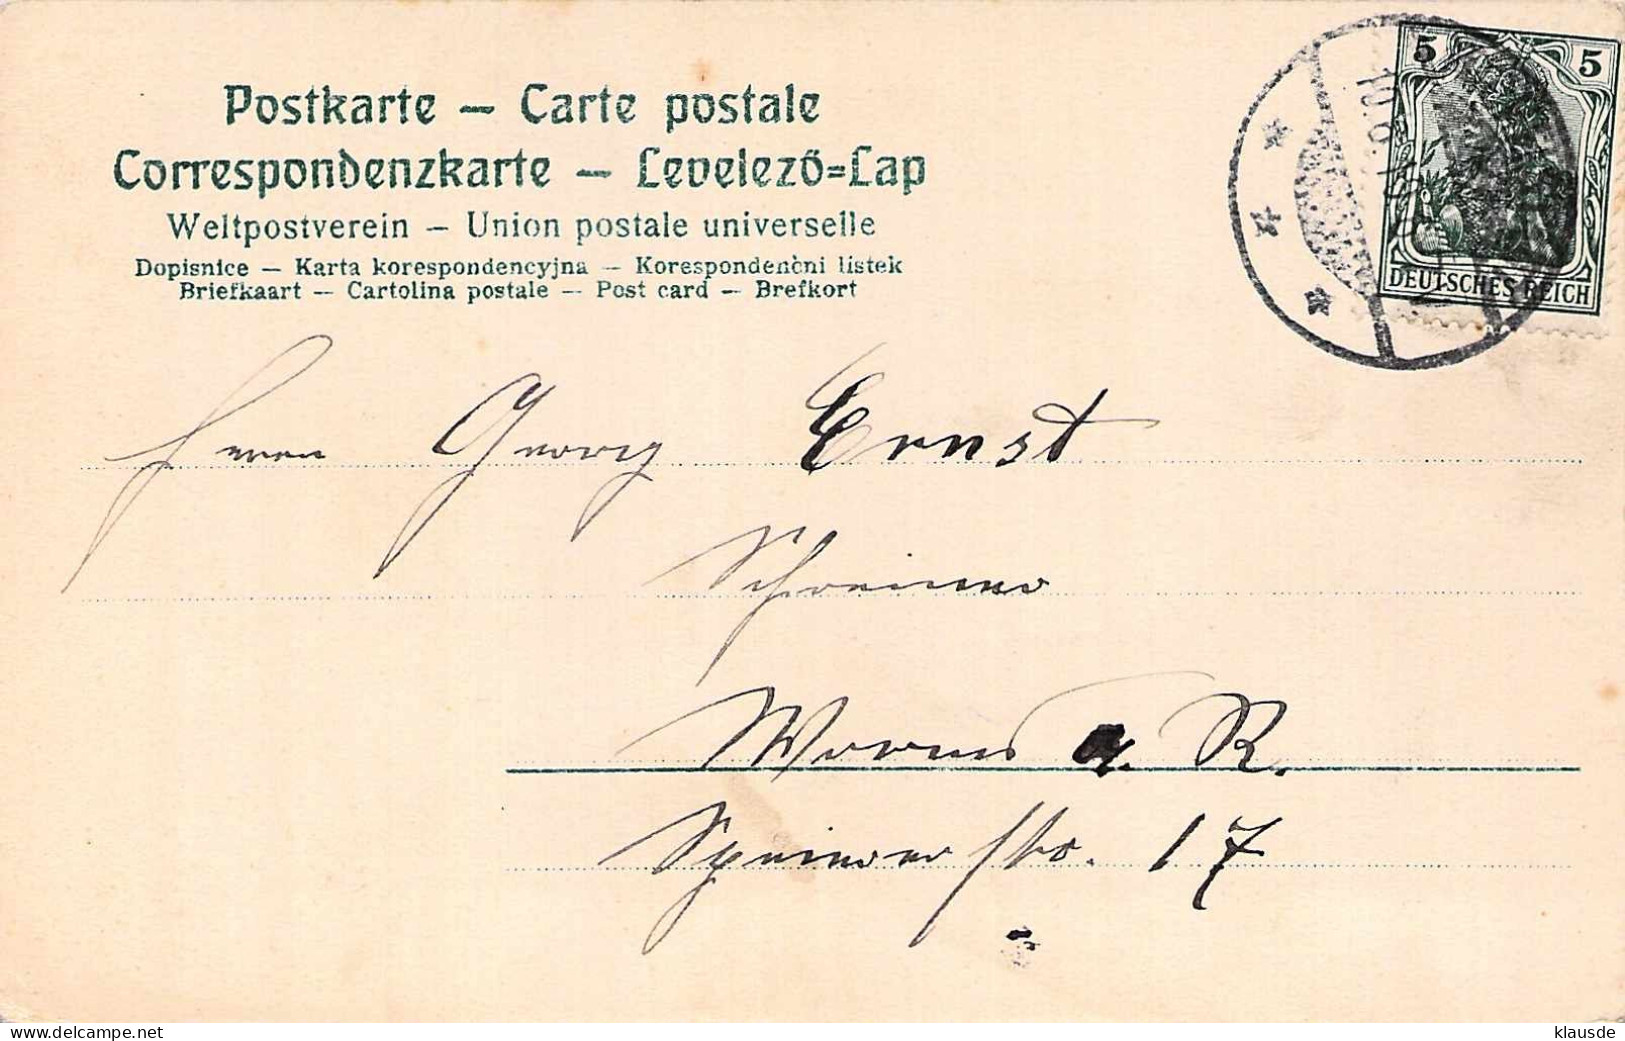 Postkarte – Carte postale
Correspondenzkarte – Levelező=Lap
Weltpostverein – Union postale universelle
Dopisnice – Karta korespondencyjna – Korespondenčni listek
Briefkaart – Cartolina postale – Post card – Brefkort
5 5
DEUTSCHES REICH
Herrn Georg Ernst
Schreiner
Worms a. R.
Speierer Str. 17
delcampe.net
klausde